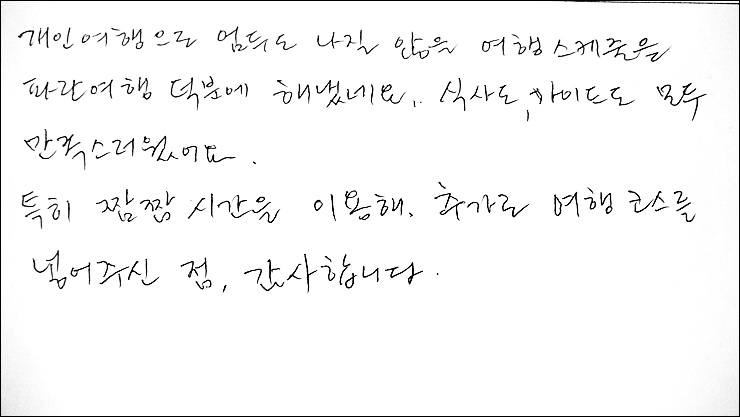 개인여행으로 엄두도 나질 않을 여행스케줄을
파란여행 덕분에 해냈네요.. 식사도, 가이드도 모두
만족스러웠어요.
특히 짬짬 시간을 이용해, 추가로 여행코스를
넣어주신 점, 감사합니다.